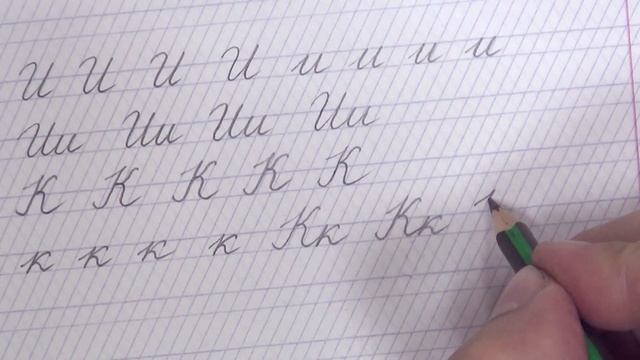 И И И И и и и и
Ии Ии Ии Ии
К К К К К
к к к к Кк Кк